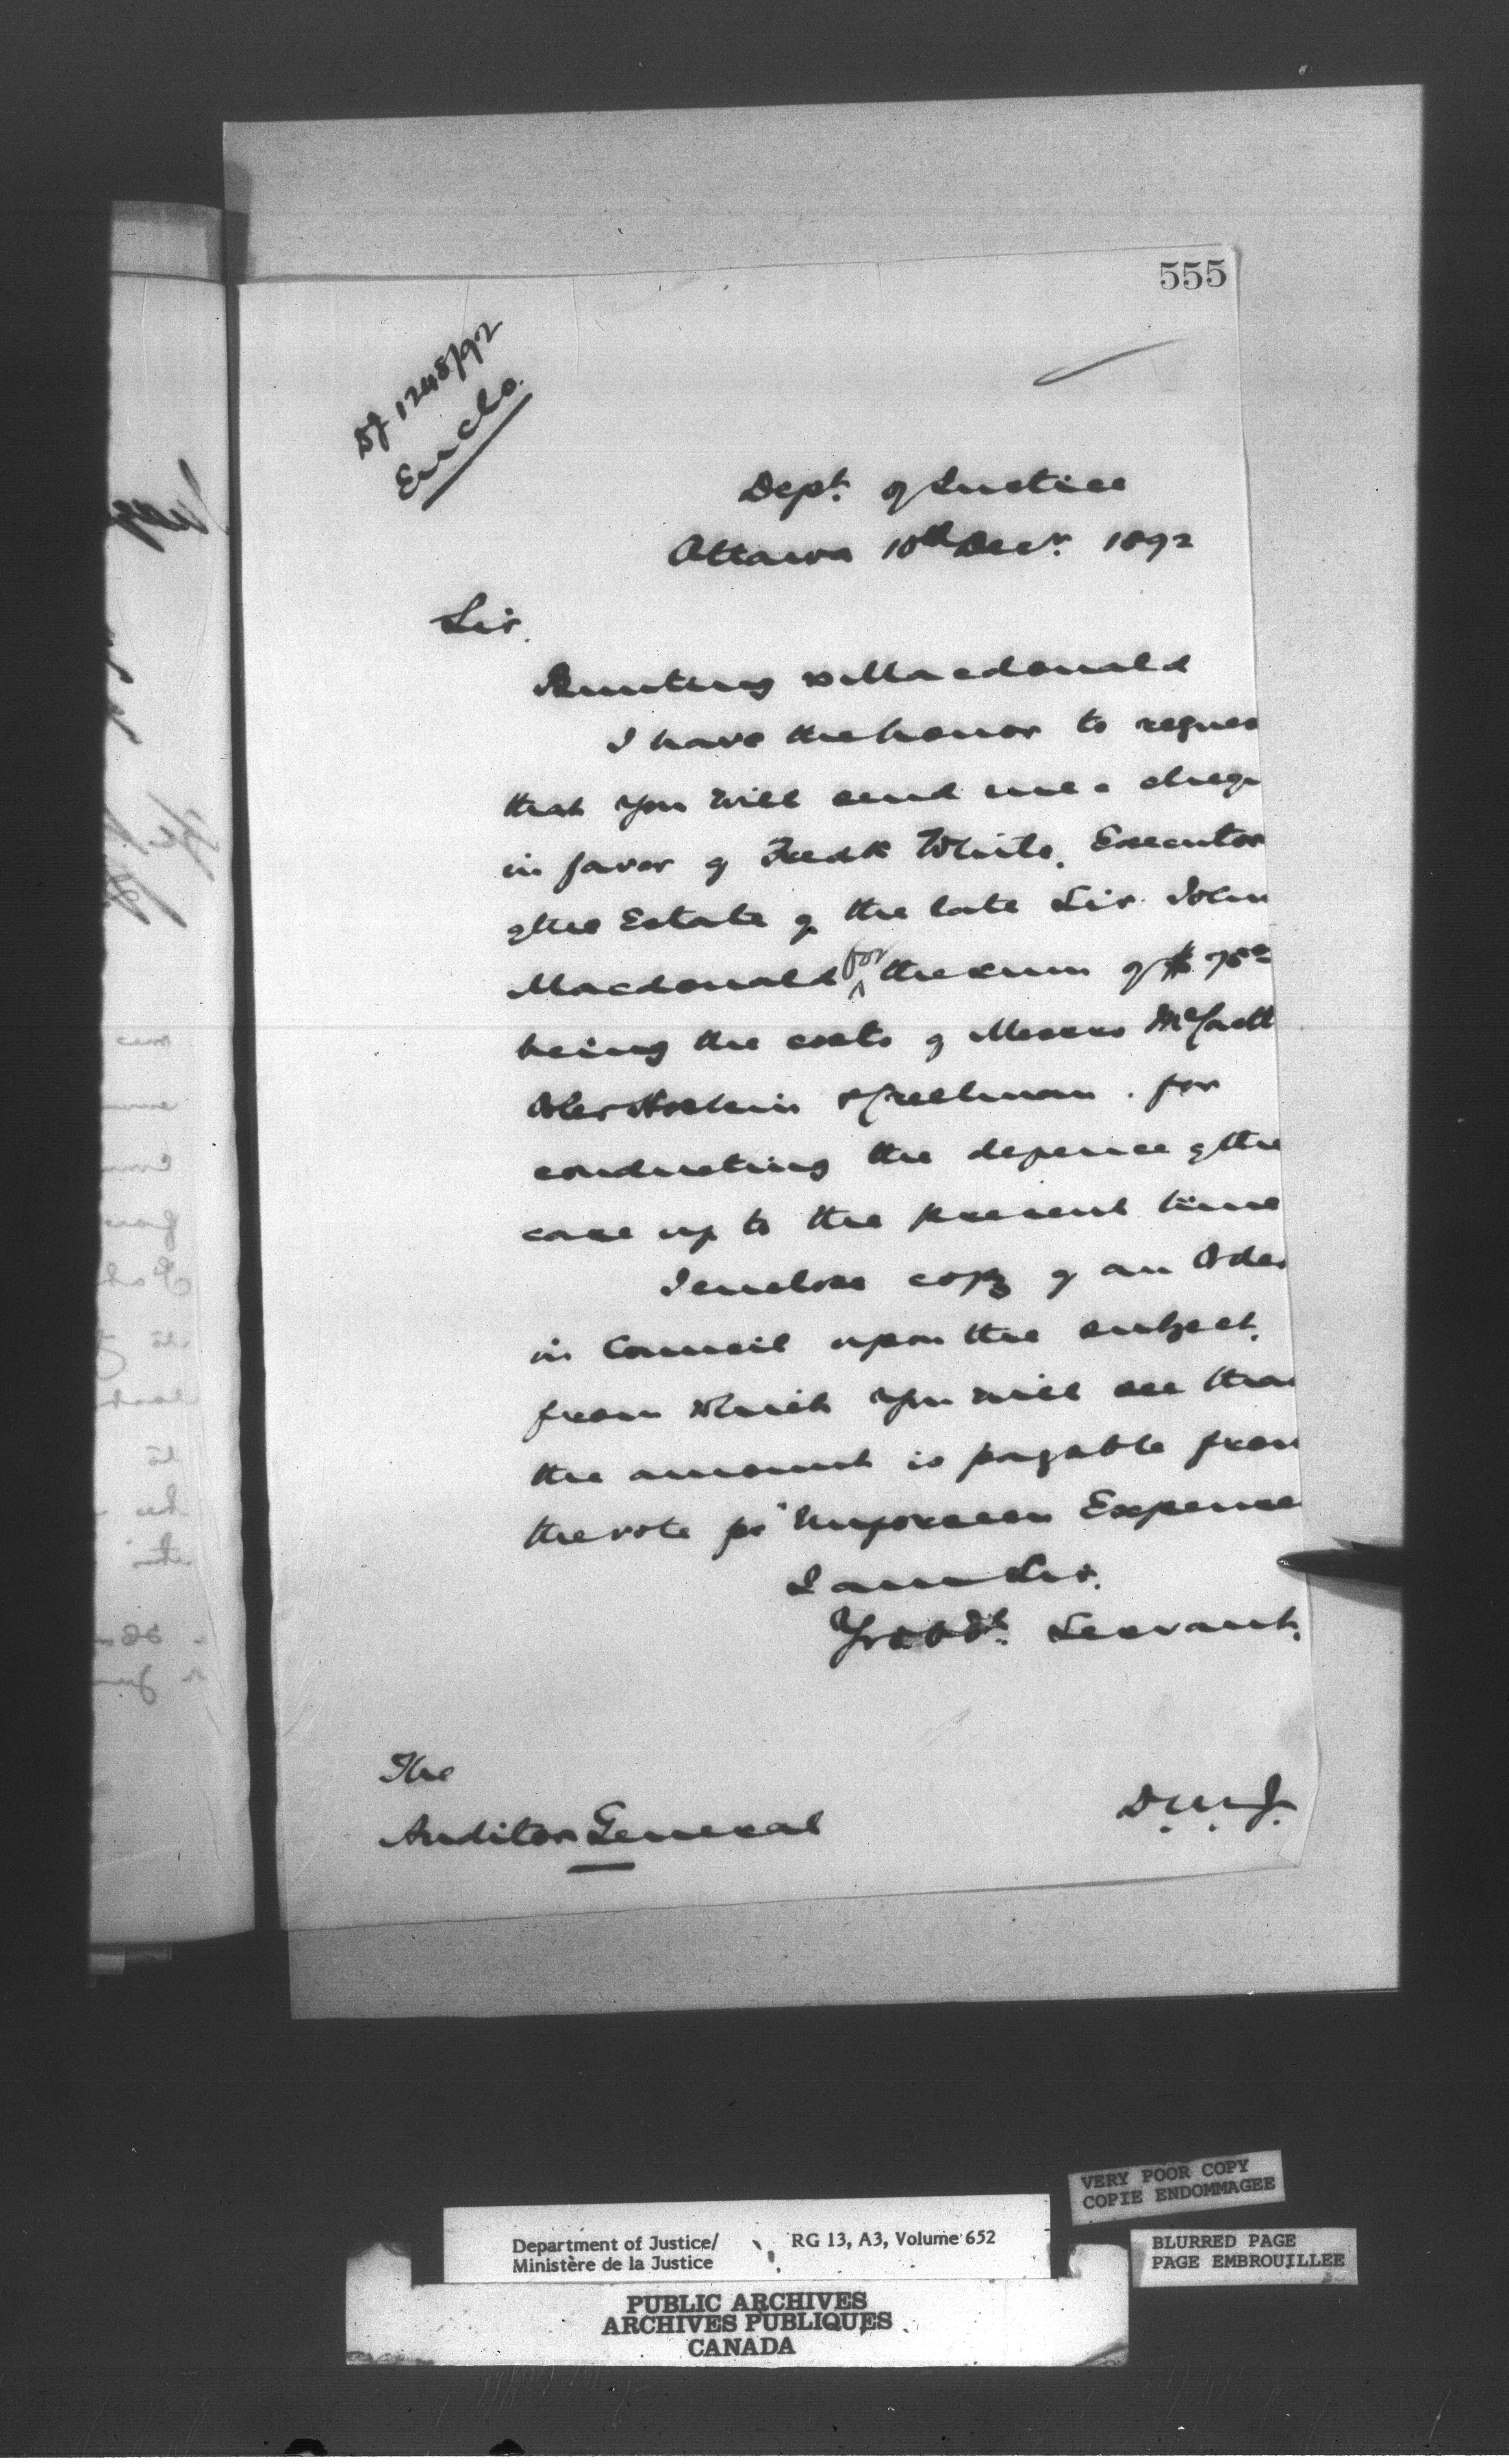 555
DJ 1248/92
Enclo.
Dept. of Justice
Ottawa 10th Decr. 1892
Sir.
Bunting v Macdonald
I have the honor to reques
that you will send me a cheq
in favor of Fredk White. Executor
of the Estate of the late Sir John
Macdonald for the sum of $ 75
being the costs of Messrs McCarth
Osler Hoskin & Creelman. for
conducting the defence of the
case up to the present time
I enclose copy of an Order
in Council upon the subject.
from which you will see tha
the amount is payable from
the vote for "Unforeseen Expense
I am Sir.
Yr Obdt. Servant.
D.M.J.
The
Auditor General
VERY POOR COPY
COPIE ENDOMMAGEE
BLURRED PAGE
PAGE EMBROUILLEE
Department of Justice/ RG 13, A3, Volume 652
Ministère de la Justice
PUBLIC ARCHIVES
ARCHIVES PUBLIQUES
CANADA